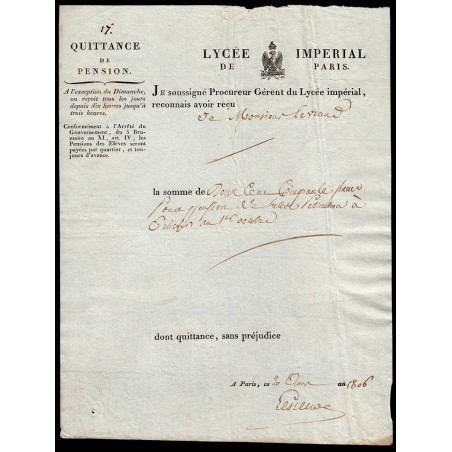 17.
QUITTANCE
DE
PENSION.
A l'exception du Dimanche,
on reçoit tous les jours
depuis dix heures jusqu'à
trois heures.
Conformément à l'Arrêté du
Gouvernement, du 5 Bru-
maire an XI, art. IV, les
Pensions des Elèves seront
payées par quartier, et tou-
jours d'avance.
LYCÉE IMPERIAL
DE PARIS.
JE soussigné Procureur Gérent du Lycée impérial,
reconnais avoir reçu
de Monsieur
la somme de Deux Cent Cinquante
Pour pension de à
au 1er octobre
dont quittance, sans préjudice
A Paris, ce 20 an 1806